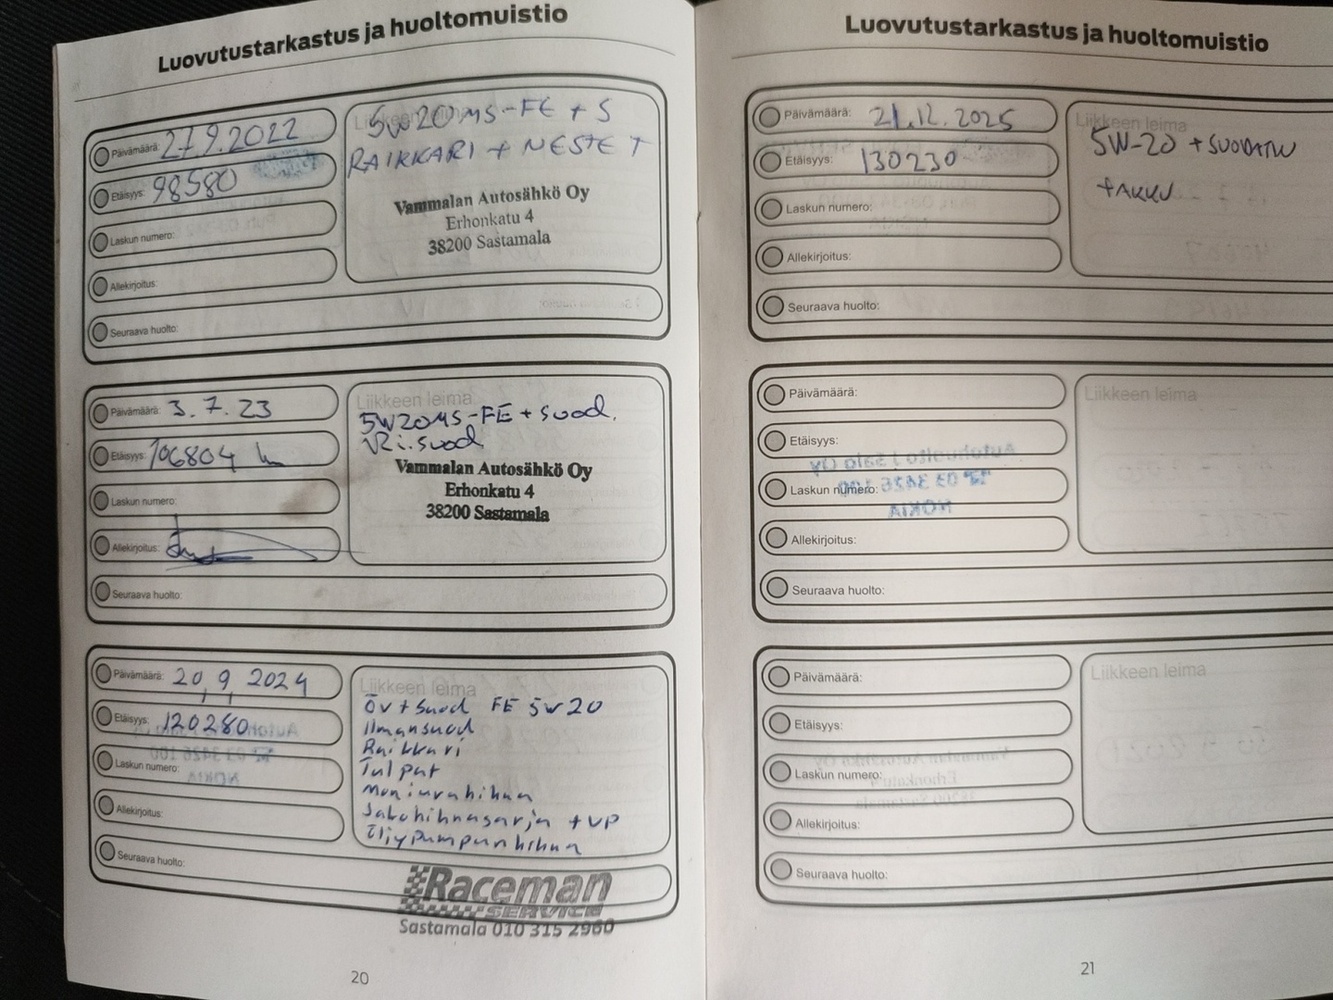 Luovutustarkastus ja huoltomuistio
Päivämäärä: 27.9.2022
Etäisyys: 98580
Laskun numero:
Allekirjoitus:
Seuraava huolto:
Liikkeen leima
5W20MS-FE + S
RAIKKARI + NESTE T
Vammalan Autosähkö Oy
Erhonkatu 4
38200 Sastamala
Päivämäärä: 3.7.23
Etäisyys: 106804
Laskun numero:
Allekirjoitus:
Seuraava huolto:
Liikkeen leima
5W20MS-FE + suod.
Ri.suod
Vammalan Autosähkö Oy
Erhonkatu 4
38200 Sastamala
Päivämäärä: 20,9,2024
Etäisyys: 120280
Laskun numero:
Allekirjoitus:
Seuraava huolto:
Liikkeen leima
Öv + suod FE 5w20
Ilmansuod
Raikkari
Tulpat
Moniurahihna
Jakohihnasarja + VP
Öljypumpunhihna
Raceman
SERVICE
Sastamala 010 315 2960
20
Luovutustarkastus ja huoltomuistio
Päivämäärä: 21.12.2025
Etäisyys: 130230
Laskun numero:
Allekirjoitus:
Seuraava huolto:
Liikkeen leima
5W-20 + SUODATIN
+AKKU
Päivämäärä:
Etäisyys:
Laskun numero:
Allekirjoitus:
Seuraava huolto:
Liikkeen leima
Päivämäärä:
Etäisyys:
Laskun numero:
Allekirjoitus:
Seuraava huolto:
Liikkeen leima
21